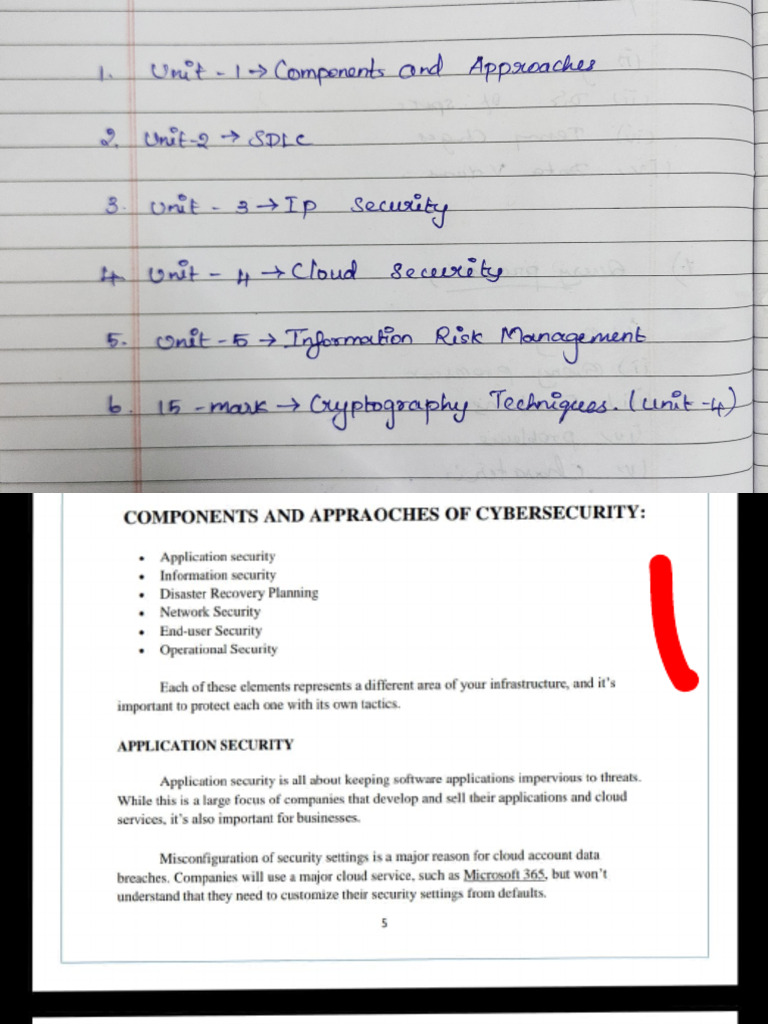 1. Unit - 1 → Components and Approaches
2. Unit-2 → SDLC
3. Unit - 3 → Ip Security
4. Unit - 4 → Cloud Security
5. Unit - 5 → Information Risk Management
6. 15 - mark → Cryptography Techniques. (Unit -4)
COMPONENTS AND APPRAOCHES OF CYBERSECURITY:
• Application security
• Information security
• Disaster Recovery Planning
• Network Security
• End-user Security
• Operational Security
Each of these elements represents a different area of your infrastructure, and it's
important to protect each one with its own tactics.
APPLICATION SECURITY
Application security is all about keeping software applications impervious to threats.
While this is a large focus of companies that develop and sell their applications and cloud
services, it's also important for businesses.
Misconfiguration of security settings is a major reason for cloud account data
breaches. Companies will use a major cloud service, such as Microsoft 365, but won't
understand that they need to customize their security settings from defaults.
5